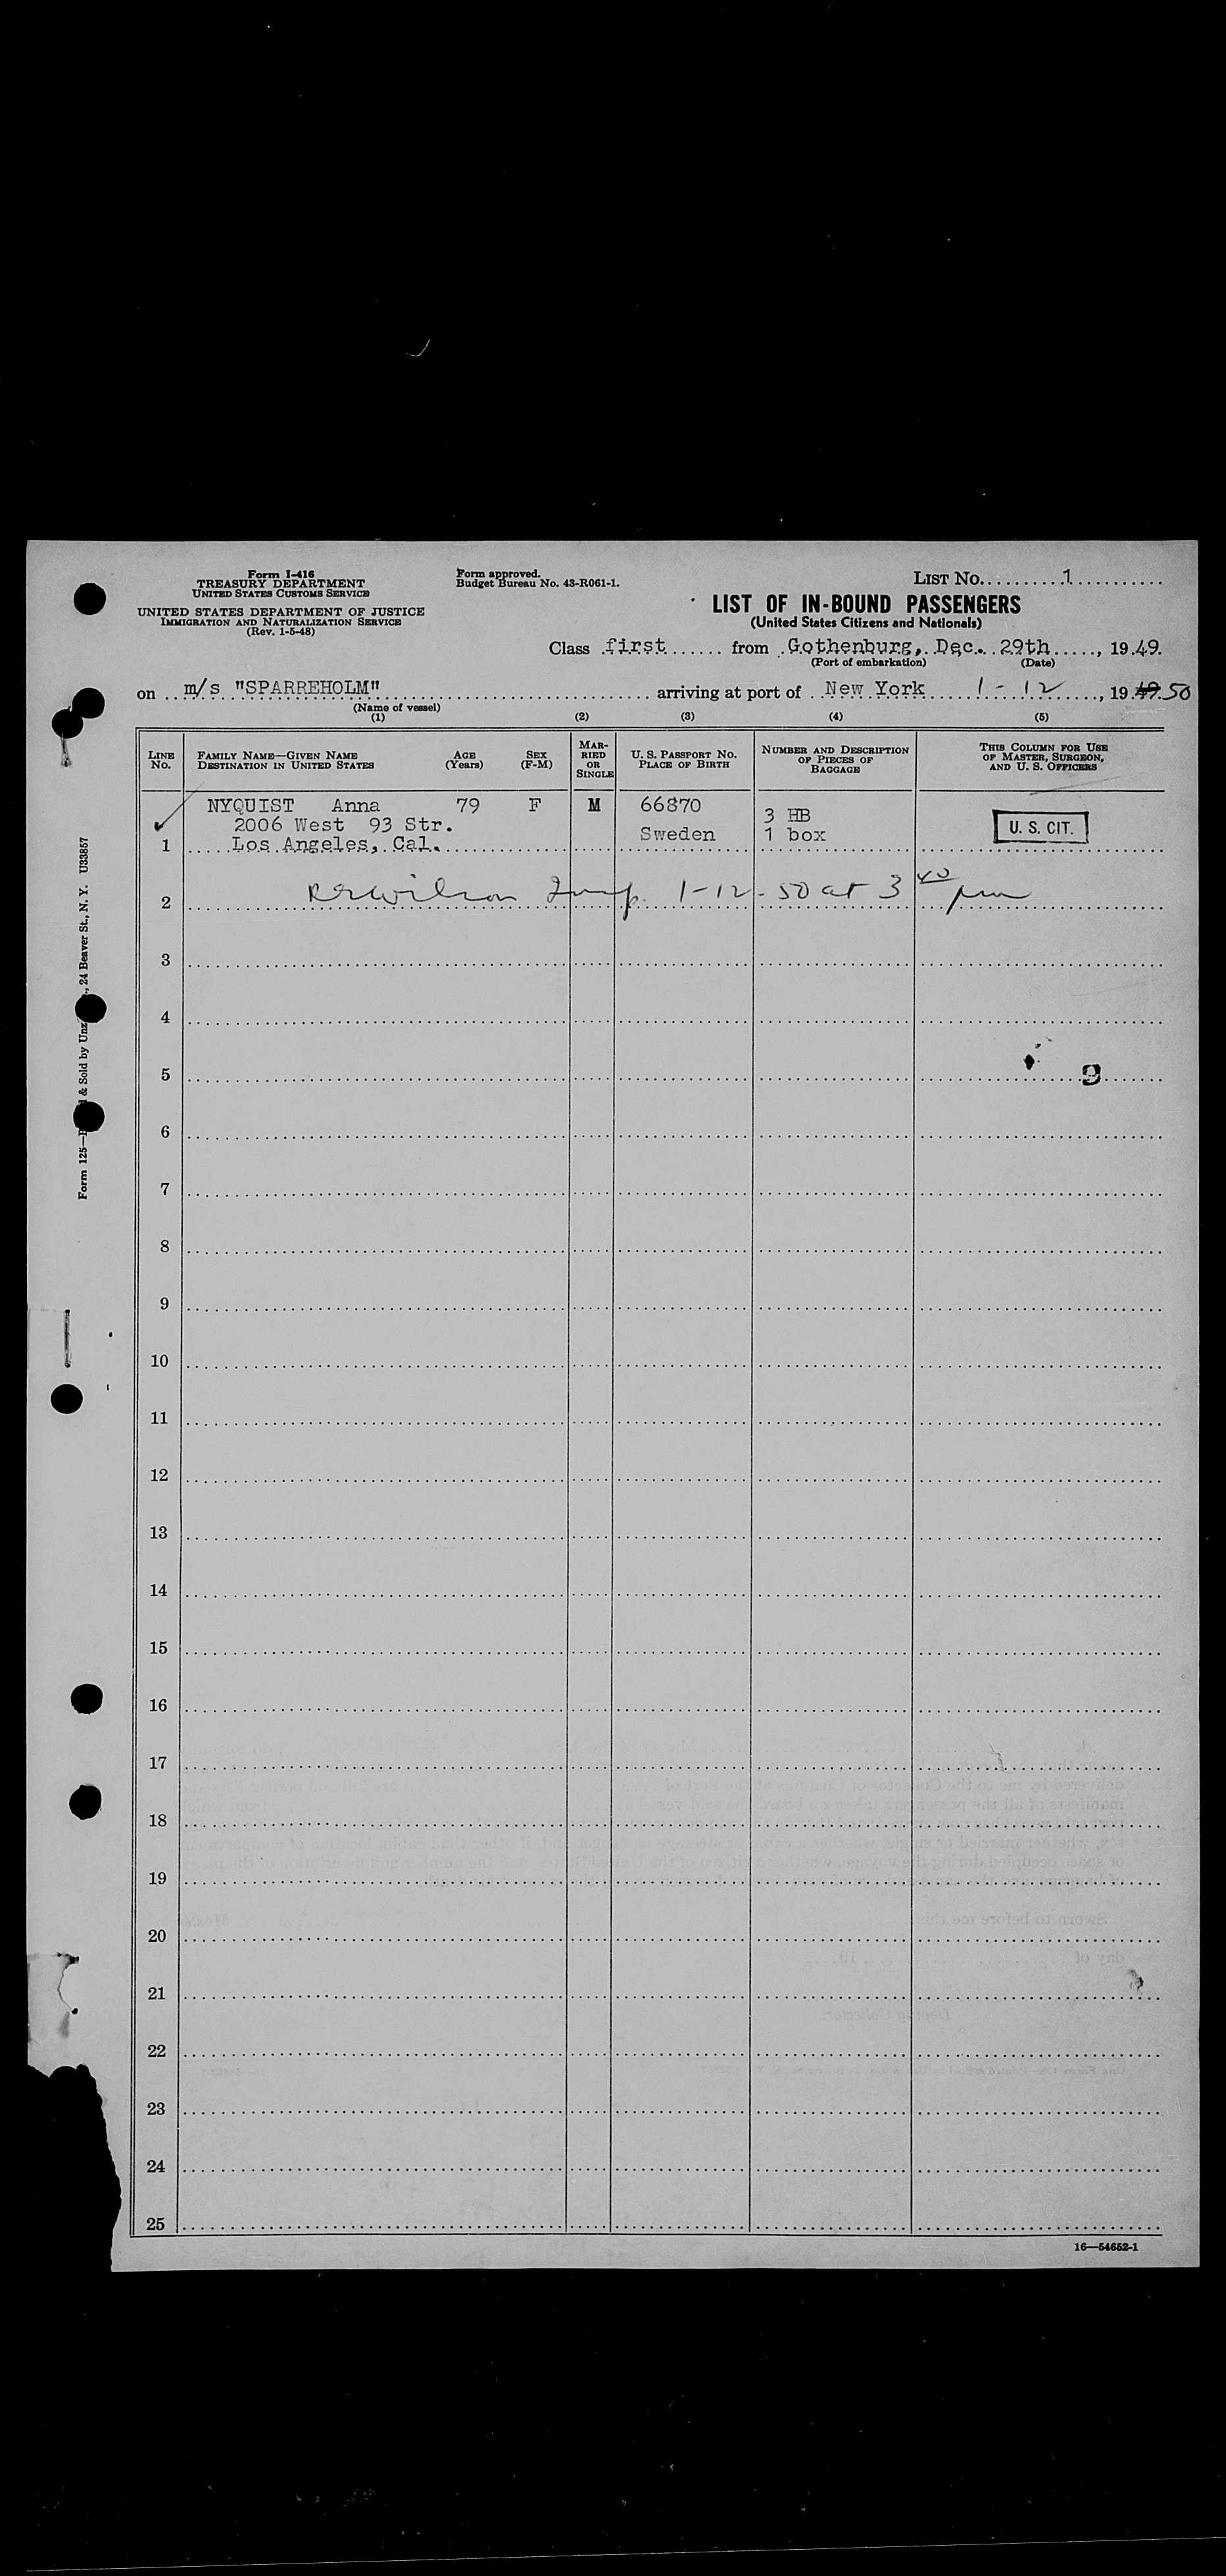 Form I-416
TREASURY DEPARTMENT
UNITED STATES CUSTOMS SERVICE
UNITED STATES DEPARTMENT OF JUSTICE
IMMIGRATION AND NATURALIZATION SERVICE
(Rev. 1-5-48)
Form approved.
Budget Bureau No. 43-R061-1.
LIST No. 1
LIST OF IN-BOUND PASSENGERS
(United States Citizens and Nationals)
Class first from Gothenburg, Dec. 29th, 1949.
(Port of embarkation) (Date)
on m/s "SPARREHOLM" arriving at port of New York 1-12, 19 49 50
(Name of vessel)
(1) (2) (3) (4) (5)
LINE No. FAMILY NAME—GIVEN NAME DESTINATION IN UNITED STATES AGE (Years) SEX (F-M) MARRIED OR SINGLE U. S. PASSPORT No. PLACE OF BIRTH NUMBER AND DESCRIPTION OF PIECES OF BAGGAGE THIS COLUMN FOR USE OF MASTER, SURGEON, AND U. S. OFFICERS
NYQUIST Anna 79 F M 66870 3 HB
2006 West 93 Str. Sweden 1 box U. S. CIT.
1 Los Angeles, Cal.
2 Wilson 1-12-50 at 3 40 pm
3
4
5 9
6
7
8
9
10
11
12
13
14
15
16
17
18
19
20
21
22
23
24
25
16—54652-1
Form 125— & Sold by Unz , 24 Beaver St., N. Y. U33857